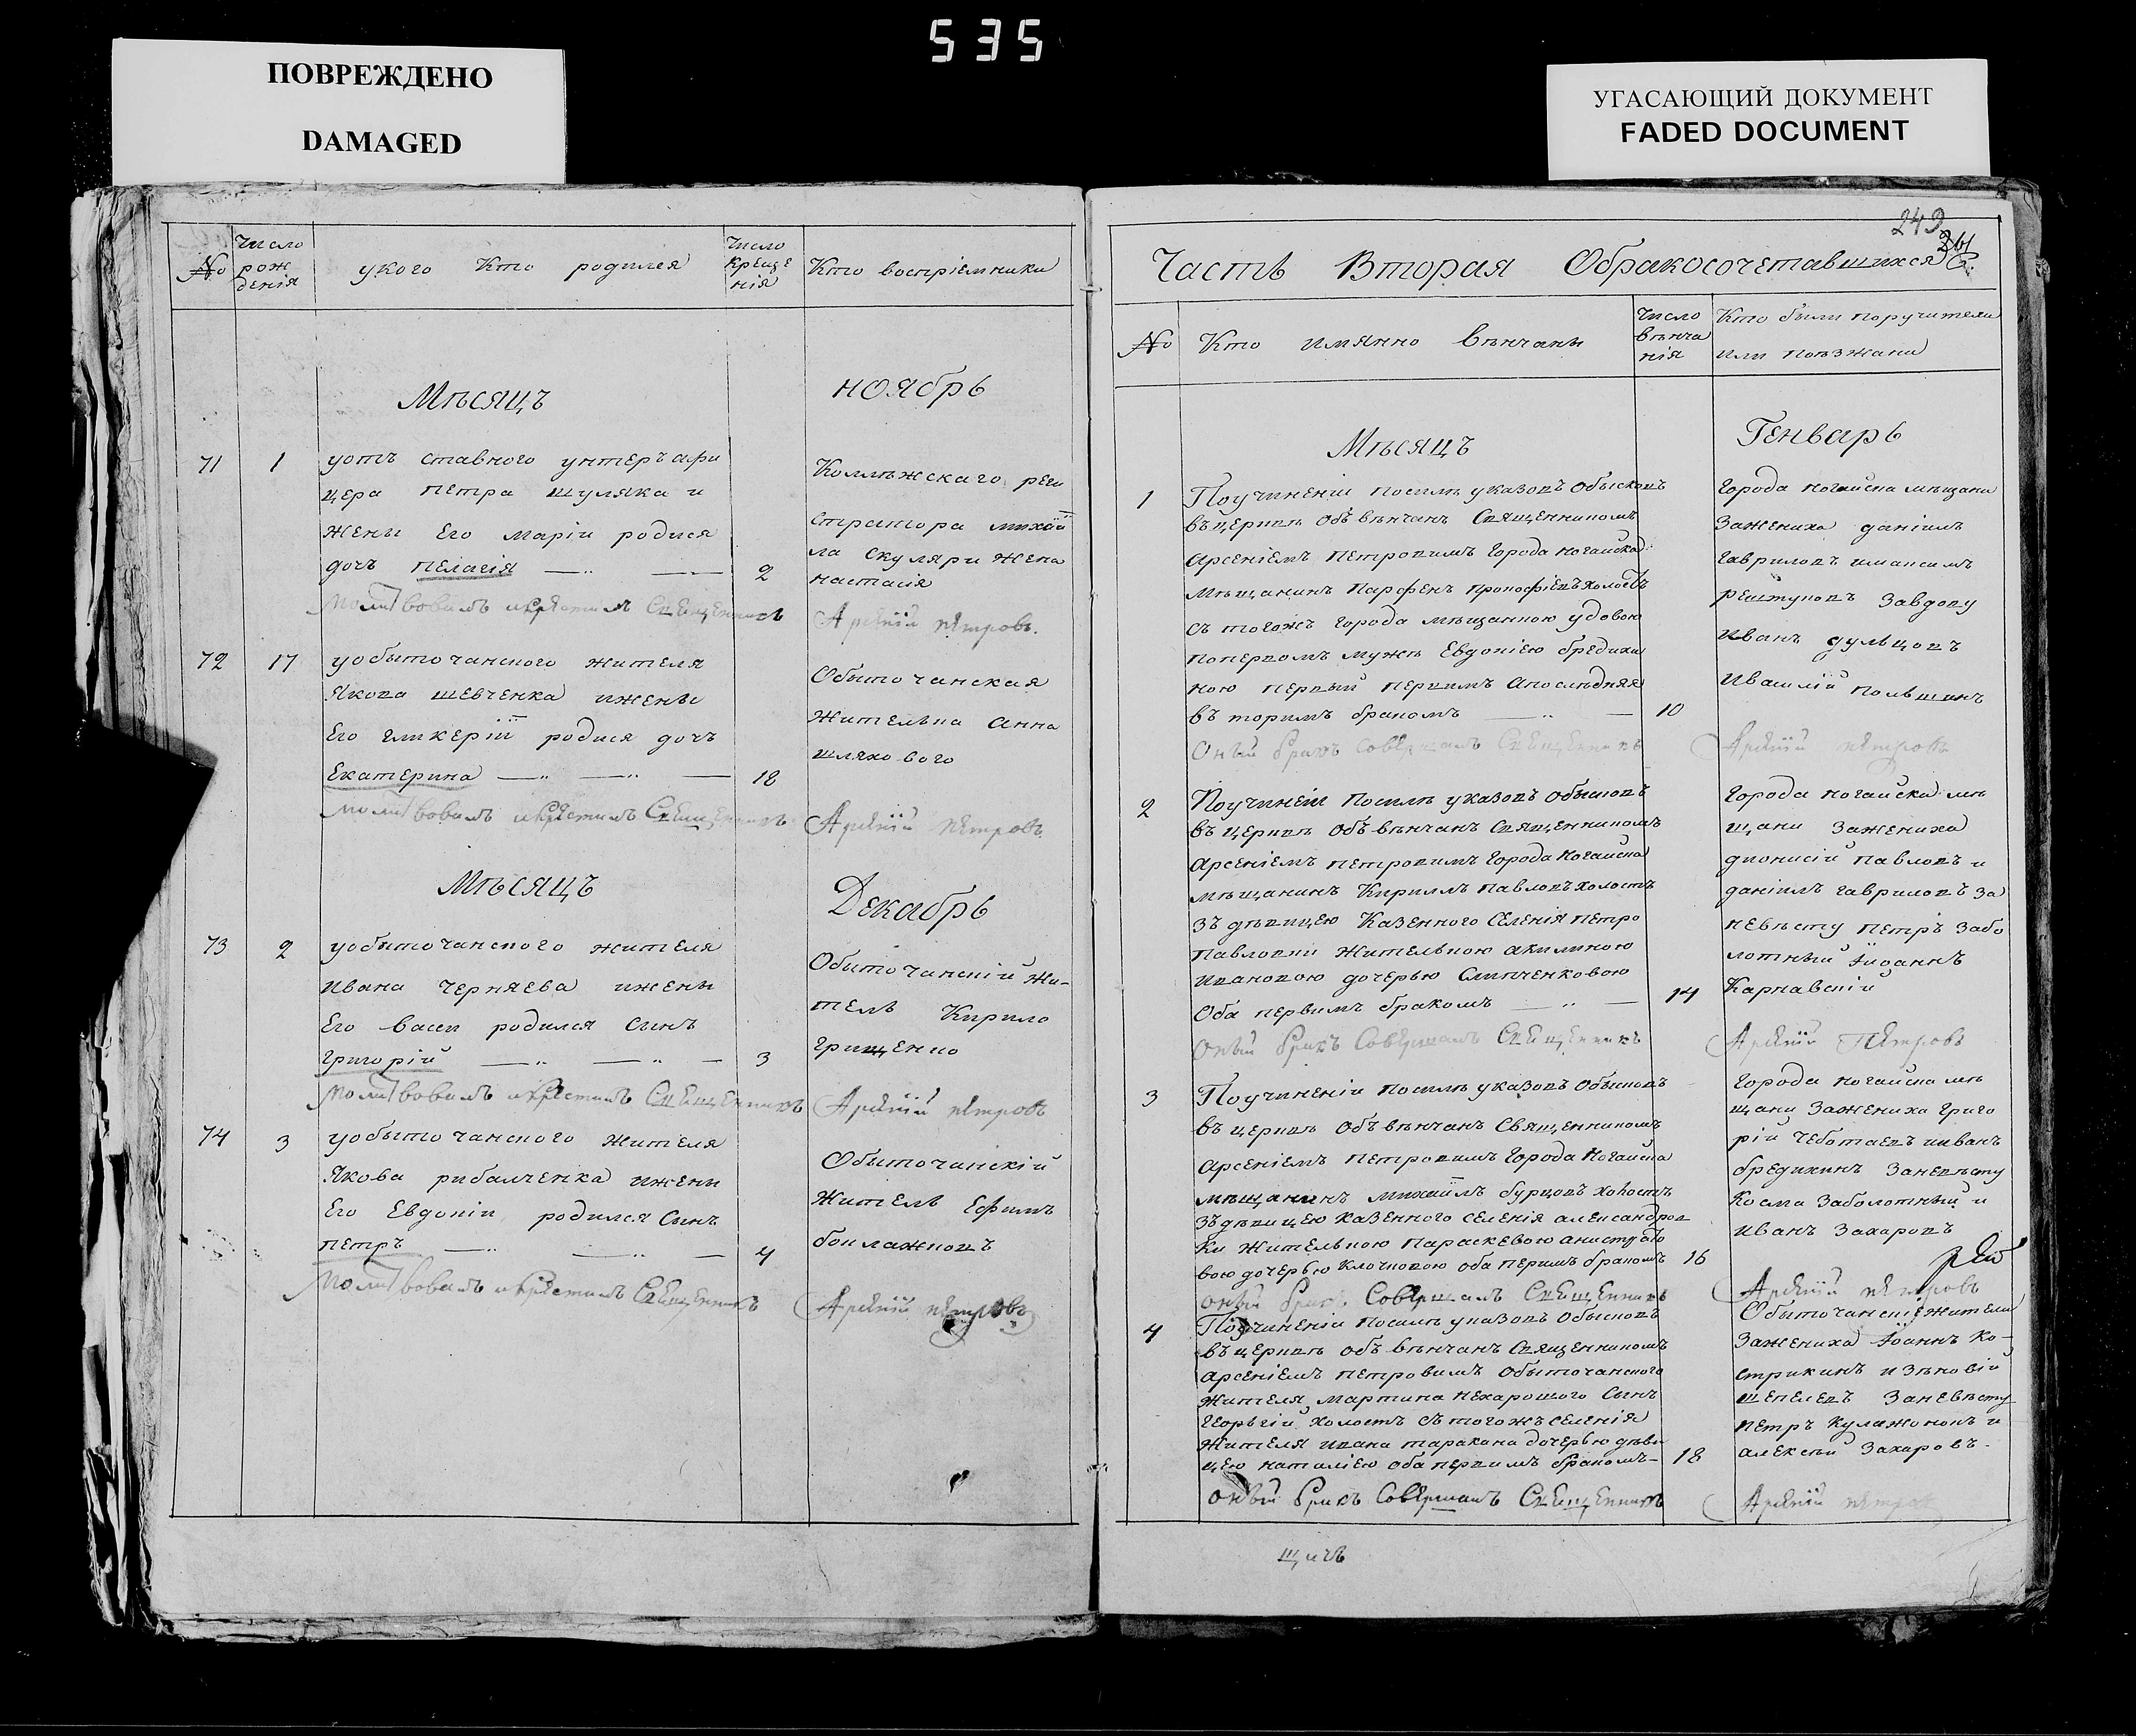 535
ПОВРЕЖДЕНО
DAMAGED
УГАСАЮЩИЙ ДОКУМЕНТ
FADED DOCUMENT
№
Число
рож
денія
укого Кто родился
Число
креще
нія
Кто воспріемники
Мѣсяцъ
ноябрь
71
1
уотъ ставного унтеръ афи
цера петра шуляка и
жены Его маріи родися
дочъ пелагія
2
Коллѣжскаго реги
стратора михаи
ла скуляри жена
настасія
молитвовалъ икрестилъ Священникъ
Арсеній петровъ.
72
17
уобыточанского жителя
якова шевченка ижены
Его гликеріи родися дочъ
Екатерина
18
Обыточанская
жителька анна
шляхового
молитвовалъ икрестилъ Священникъ
Арсеній петровъ
Мѣсяцъ
Декабрь
73
2
уобыточанского жителя
ивана черняева ижены
Его васси родился сынъ
григорій
3
Обыточанскій жи-
тель Кирило
грищенко
молитвовалъ икрестилъ Священникъ
Арсеній петровъ
74
3
уобыточанского жителя
якова рибалченка ижены
Его Евдокіи родился сынъ
петръ
4
Обыточанскій
житель Ефимъ
молитвовалъ икрестилъ Священникъ
Арсеній петровъ
249
Часть Вторая Обракосочетавшихся
№
Кто имянно вѣнчаны
Число
вѣнча
нія
Кто были поручители
или поѣзжани
Мѣсяцъ
Генварь
1
Поучиненіи посилѣ указовъ обысковъ
въ церквѣ объ вѣнчанъ Священникомъ
арсеніемъ петровимъ города ногайска
мѣщанинъ парфенъ прокофіевъ холостъ
съ тогожъ города мѣщанкою удовою
поперво мъ мужѣ Евдокіею бредихи
ною первый первимъ апослѣдняя
въ торимъ бракомъ
10
Города ногайска мѣщани
зажениха даніилъ
гавриловъ имаксимъ
решетуновъ завдову
иванъ дульцовъ
оный бракъ совершалъ Священникъ
Арсеній петровъ
2
Поучиненіи посилѣ указовъ обысковъ
въ церквѣ объ вѣнчанъ Священникомъ
арсеніемъ петровимъ города ногайска
мѣщанинъ Кириллъ павловъ холостъ
зъ дѣвицею Казенного селенія петро
павловки жителькою акилиною
ивановою дочерью Слипченковою
Оба первимъ бракомъ
14
города ногайска мѣ
щани зажениха
дионисій павловъ и
даніилъ гавриловъ за
невѣсту петръ забо
лотный иіоаннъ
Карнавскій
оный бракъ совершалъ Священникъ
Арсеній Петровъ
3
Поучиненіи посилѣ указовъ обысковъ
въ церквѣ объ вѣнчанъ Священникомъ
арсеніемъ петровимъ города ногайска
мѣщанинъ михаилъ бурцовъ холостъ
зъ дѣвицею казенного селенія александров
ки жителькою параскевою
вою дочерью клочковою оба первимъ бракомъ
16
города ногайска мѣ
щани зажениха григо
рій чеботаевъ ииванъ
бредихинъ заневѣсту
Косма заболотный и
иванъ захаровъ
оный бракъ совершалъ Священникъ
Арсеній петровъ
4
Поучиненіи посилѣ указовъ обысковъ
въ церквѣ объ вѣнчанъ Священникомъ
арсеніемъ петровимъ обыточанского
жителя мартина нехарошого сынъ
георьгій холостъ съ тогожъ селенія
жителя ивана таракана дочерью дѣви
цею наталіею оба первимъ бракомъ
18
Обыточанскіе жители
зажениха іоаннъ Ко-
стрикинъ изѣновій
шепелевъ заневѣсту
петръ кулажонокъ и
алексѣй захаровъ.
оный бракъ совершалъ Священникъ
Арсеній петровъ
щикъ